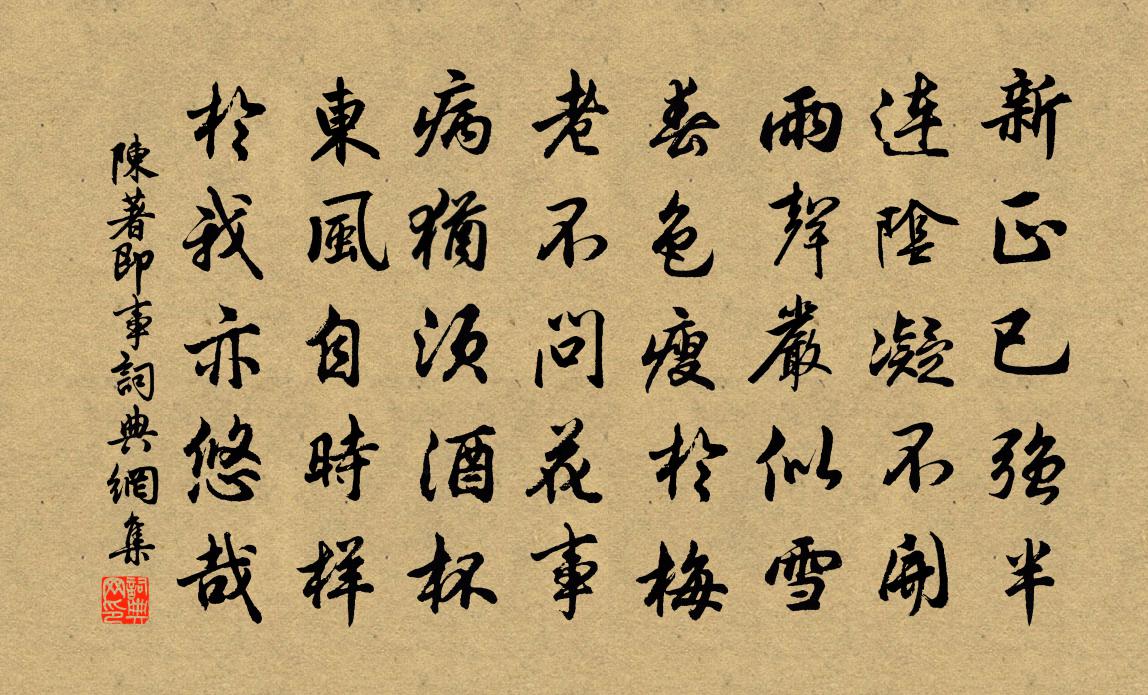 新正已強半
連陰凝不開
雨聲嚴似雪
春色瘦於梅
老不問花事
病猶須酒杯
東風自時樣
於我亦悠哉
陳著即事詞典網集
詞典网印